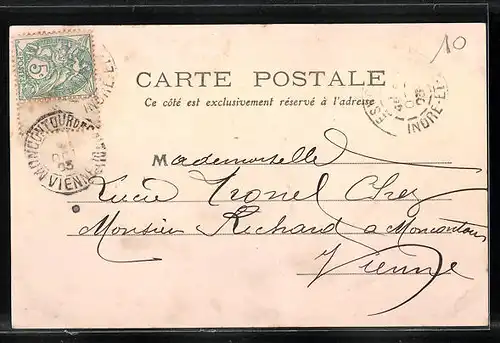 10
5
CARTE POSTALE
Ce côté est exclusivement réservé à l'adresse
INDRE-ET-
INDRE-ET-
MONCONTOUR
VIENNE
03
Mademoiselle
Lucie Tronel Chez
Monsieur Richard a Moncontour
Vienne